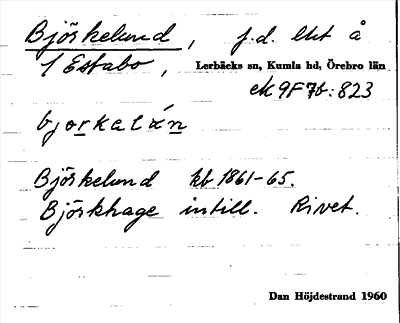 Björkelund, f.d. lht å
1 Estabo, Lerbäcks sn, Kumla hd, Örebro län
ek 9F7b:823
Björkelund kb 1861-65.
Björkhage intill. Rivet.
Dan Höjdestrand 1960